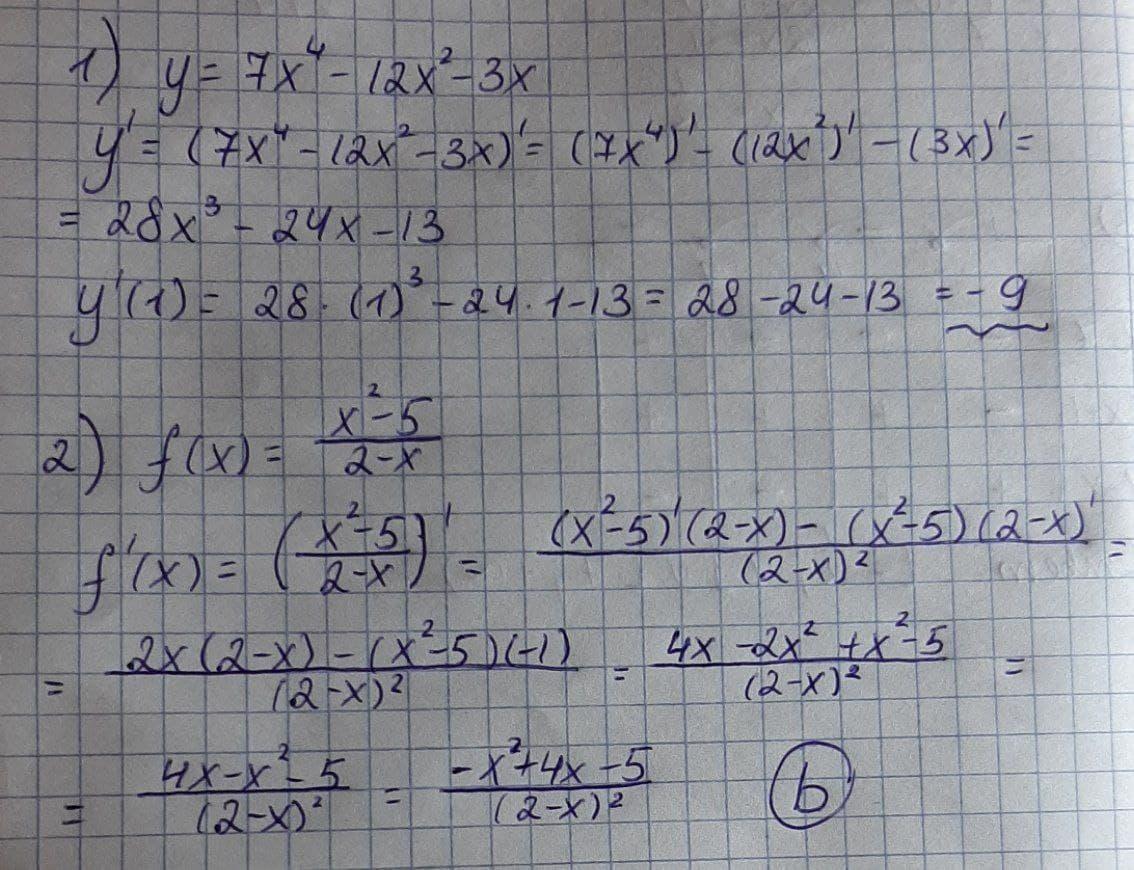 1) y = 7x⁴ - 12x² - 3x
y' = (7x⁴ - 12x² - 3x)' = (7x⁴)' - (12x²)' - (3x)' =
= 28x³ - 24x - 13
y'(1) = 28 · (1)³ - 24 · 1 - 13 = 28 - 24 - 13 = - 9
2) f(x) = (x² - 5)/(2 - x)
f'(x) = ((x² - 5)/(2 - x))' = ((x² - 5)'(2 - x) - (x² - 5)(2 - x)')/((2 - x)²) =
= (2x(2 - x) - (x² - 5)(-1))/((2 - x)²) = (4x - 2x² + x² - 5)/((2 - x)²) =
= (4x - x² - 5)/((2 - x)²) = (-x² + 4x - 5)/((2 - x)²) b